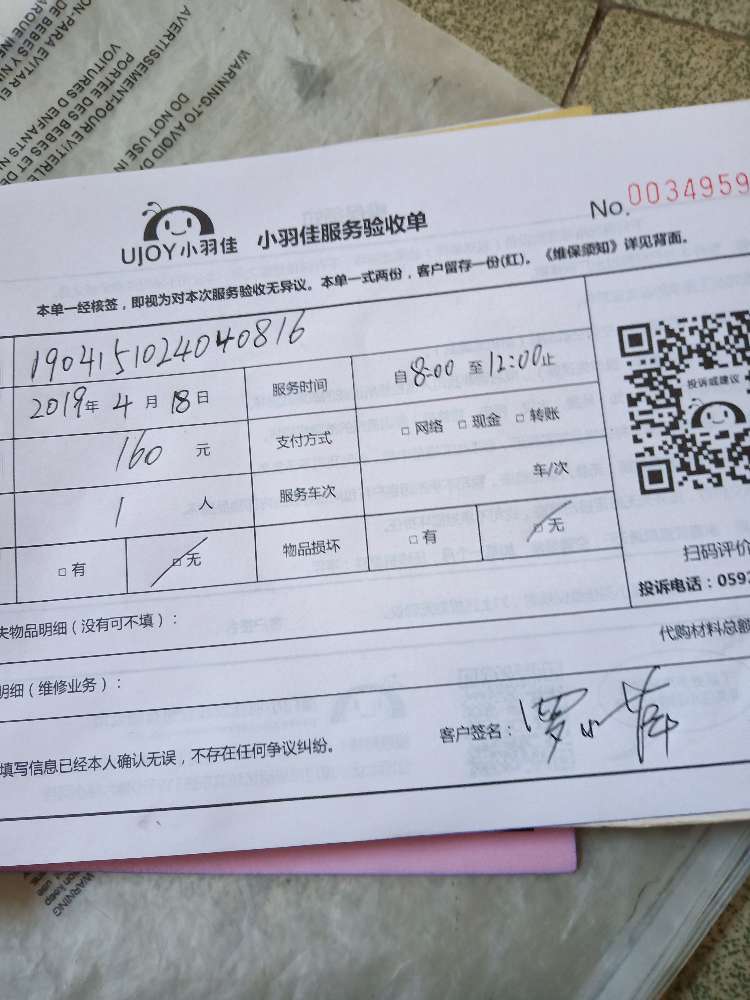 ON-PARA EVITAR EL
DE BEBES Y NI
AVERTISSEMENT-POUR EVITERLE
PORTEE DES BEBES ET DE
VOITURES D ENFANTS N
WARNING-TO AVOID DA
DO NOT USE IN
No. 0034959
UJOY小羽佳 小羽佳服务验收单
本单一经核签，即视为对本次服务验收无异议。本单一式两份，客户留存一份(红)。《维保须知》详见背面。
1904151024040816
2019年 4 月 18 日 服务时间 自 8:00 至 12:00 止
160 元 支付方式 □ 网络 □ 现金 □ 转账
1 人 服务车次 车/次
□ 有 □ 无 物品损坏 □ 有 □ 无
投诉或建议
扫码评价
投诉电话：0592
失物品明细（没有可不填）：
代购材料总额
明细（维修业务）：
填写信息已经本人确认无误，不存在任何争议纠纷。
客户签名：
WARNING